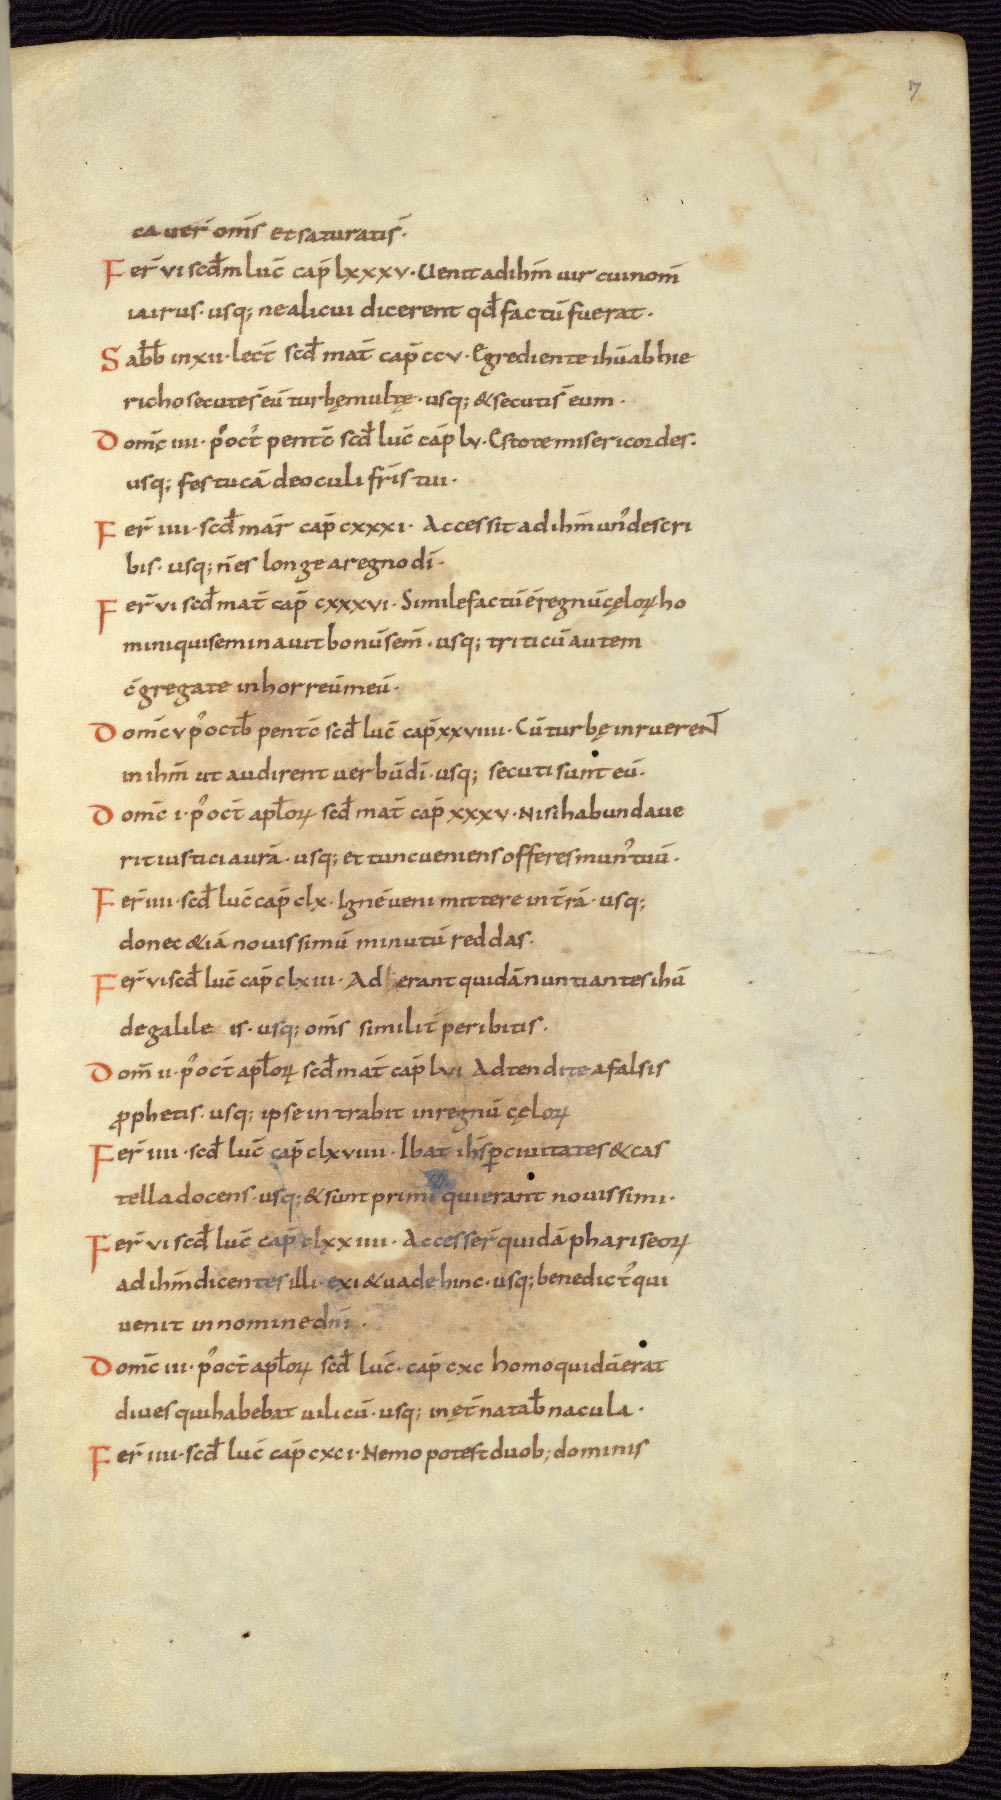 7
ca uer̄ om̄s et saturati s̄.
Fer̄ vi scd̄m luc̄ cap̄ lxxxv. Uenit ad ihm̄ uir cui nom̄
iairus. usq; ne alicui dicerent qd̄ factū fuerat.
Sabb̄ in xii. lect̄ scd̄ mat̄ cap̄ ccv. Egrediente ihū ab hie
richo secutes̄ eū turbę multę. usq; & secuti s̄ eum.
Domc̄ iiii. p᾽ oct̄ pentc̄ scd̄ luc̄ cap̄ lv. Estote misericordes.
usq; festucā de oculi frīs tui.
Fer̄ iiii. scd̄ mar̄ cap̄ cxxxi. Accessit ad ihm̄ un᾽ de scri
bis. usq; n̄ es longe a regno dī.
Fer̄ vi scd̄ mat̄ cap̄ cxxxvi. Simile factū ē regnū cęloꝝ ho
mini qui seminauit bonū sem̄. usq; triticū autem
c̄gregate in horreū meū.
Domc̄ v p᾽ octb̄ pentc̄ scd̄ luc̄ cap̄ xxviiii. Cū turbę inruerent
in ihm̄ ut audirent uerbū dī. usq; secuti sunt eū.
Domc̄ i. p᾽ oct̄ apl̄oꝝ scd̄ mat̄ cap̄ xxxv. Nisi habundaue
rit iusticia urā. usq; et tunc ueniens offeres mun᾽ tuū.
Fer̄ iiii. scd̄ luc̄ cap̄ clx. Ignē ueni mittere in t̄rā. usq;
donec & iā nouissimū minutū reddas.
Fer̄ vi scd̄ luc̄ cap̄ clxiii. Ad erant quidā nuntiantes ihū
de galile is. usq; om̄s similit̄ peribitis.
Dom̄ ii. p᾽ oct̄ apl̄oꝝ scd̄ mat̄ cap̄ lvi Adtendite a falsis
ꝓphetis. usq; ipse intrabit in regnū cęloꝝ
Fer̄ iiii. scd̄ luc̄ cap̄ clxviiii. Ibat ihs̄ ꝑ ciuitates & cas
tella docens. usq; & sunt primi qui erant nouissimi.
Fer̄ vi scd̄ luc̄ cap̄ clxxiiii. Accesser̄ quidā phariseoꝝ
ad ihm̄ dicentes illi. exi & uade hinc. usq; benedict᾽ qui
uenit in nomine dnī.
Domc̄ iii. p᾽ oct̄ apl̄oꝝ scd̄ luc̄. cap̄ cxc homo quidā erat
diues qui habebat uilicū. usq; in ęt̄na tab̄nacula.
Fer̄ iiii. scd̄ luc̄ cap̄ cxci. Nemo potest duob; dominis